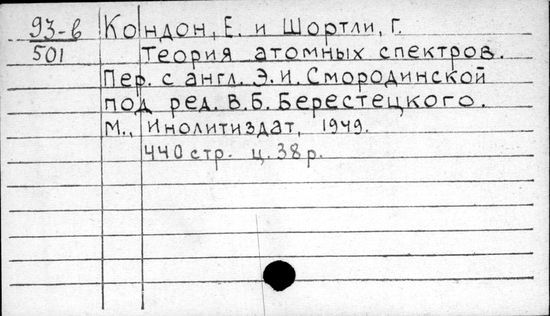 93-в Кондон, Е. и Шортли, Г.
501 Теория атомных спектров.
Пер. с англ. Э.И. Смородинской
под ред. В.Б. Берестецкого.
М., Инолитиздат, 1949.
440 стр. ц. 38 р.